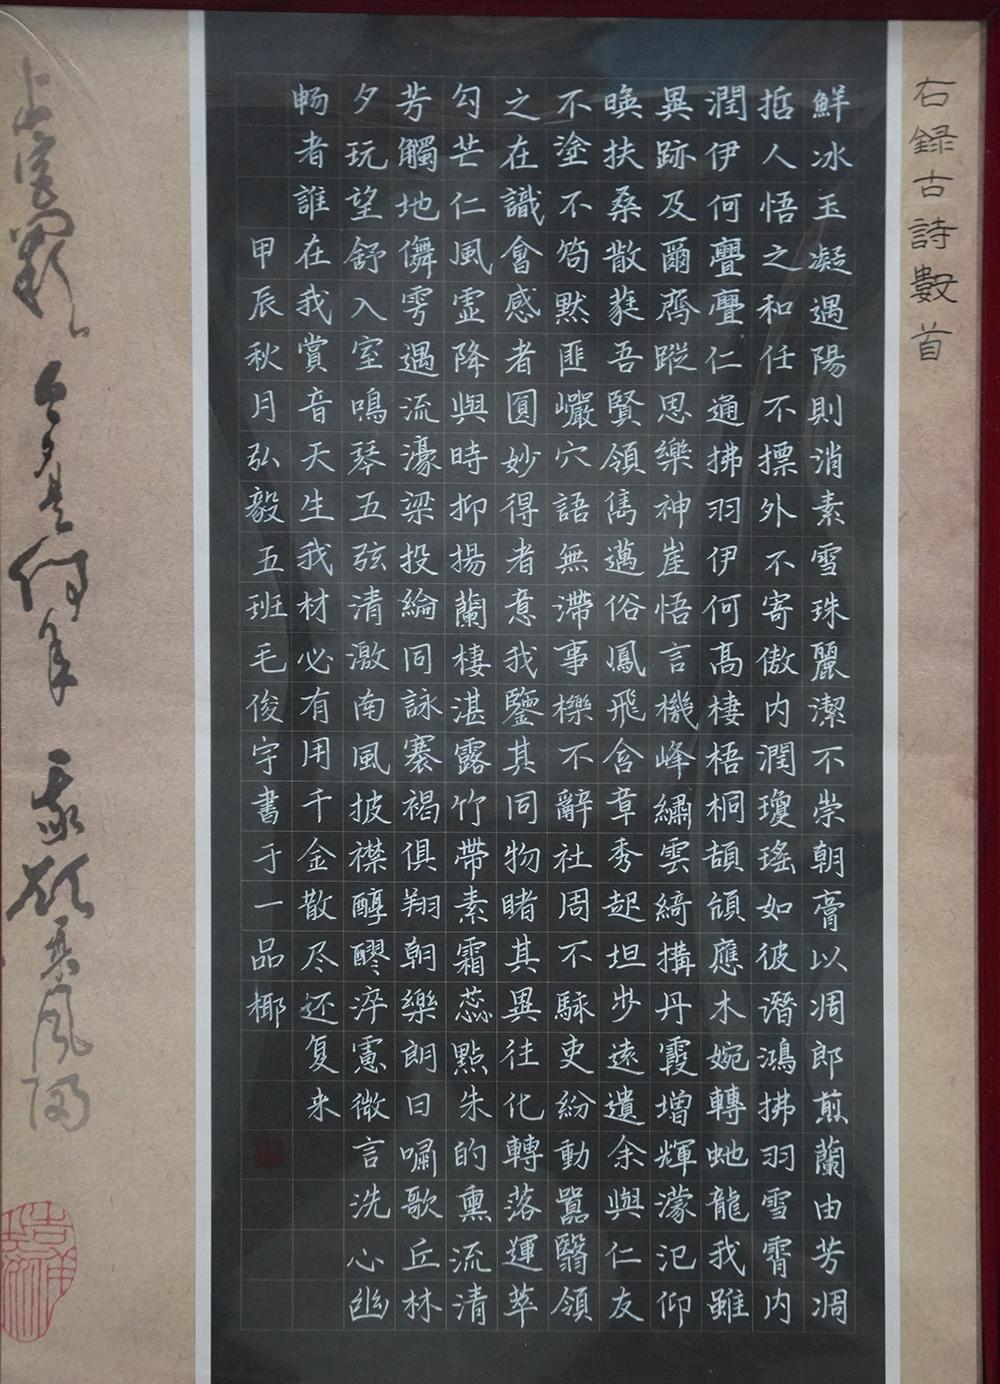 右録古詩數首
鮮冰玉凝遇陽則消素雪珠麗潔不崇朝膏以凋郎煎蘭由芳凋
悊人悟之和任不摽外不寄傲内潤瓊瑤如彼潛鴻拂羽雪霄内
潤伊何亹亹仁通拂羽伊何高棲梧桐頡頏應木婉轉虵龍我雖
異跡及爾齊蹤思樂神崖悟言機峰繡雲綺構丹霞增輝濛汜仰
暎扶桑散蕤吾賢領雋邁俗鳳飛含章秀起坦步遠遺余與仁友
不塗不笱默匪巖穴語無滯事櫟不辭社周不駭吏紛動囂翳領
之在識會感者圓妙得者意我鑒其同物睹其異往化轉落運萃
勾芒仁風虛降與時抑揚蘭棲湛露竹帶素霜蕊點朱的熏流清
芳觸地儛雩遇流濠梁投綸同詠褰褐俱翔朝樂朗日嘯歌丘林
夕玩望舒入室鳴琴五弦清激南風披襟醇醪淬慮微言洗心幽
畅者誰在我賞音天生我材必有用千金散尽还复来
甲辰秋月弘毅五班毛俊宇書于一品椰
上宫阙今夕是何年我欲乘风归